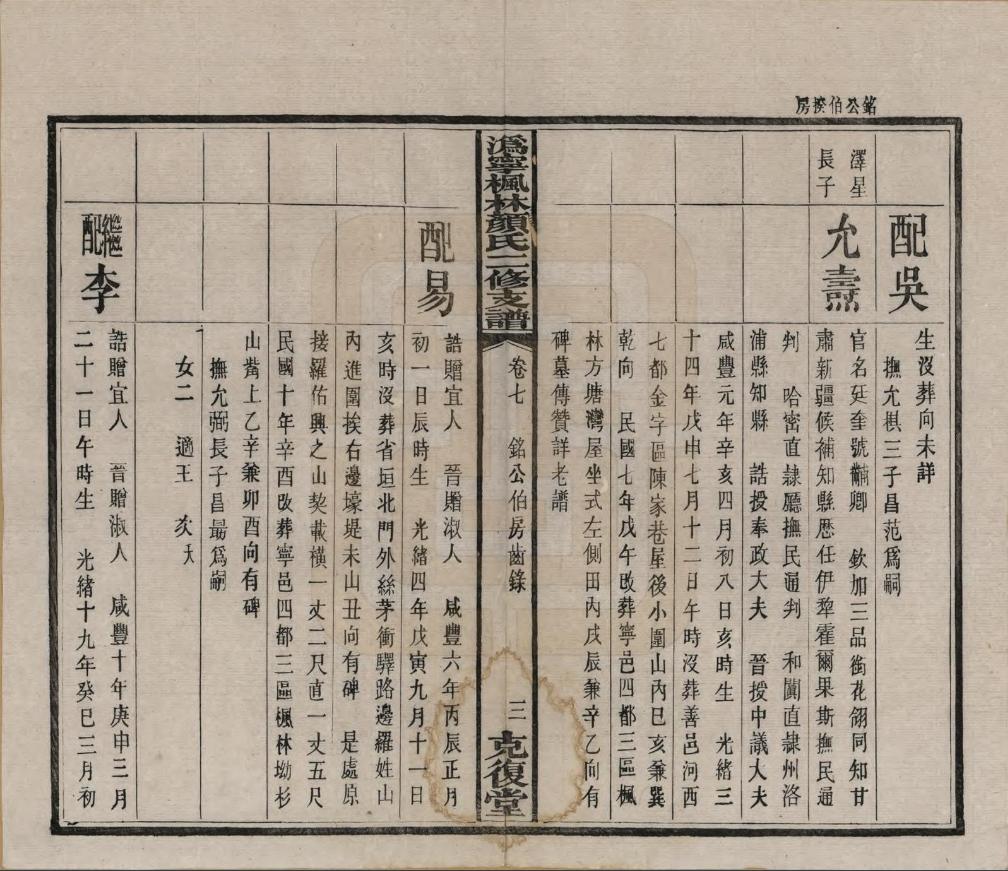 銘公伯揆房
配吳
生沒葬向未詳
撫允棋三子昌范爲嗣
澤星
長子
允燾
官名廷奎號黼卿 欽加三品銜花翎同知甘
肅新疆候補知縣歷任伊犂霍爾果斯撫民通
判 哈密直隸廳撫民通判 和闐直隸州洛
浦縣知縣 誥授奉政大夫 晉授中議大夫
咸豐元年辛亥四月初八日亥時生 光緒三
十四年戊申七月十二日午時沒葬善邑河西
七都金字區陳家巷屋後小圍山內巳亥兼巽
乾向 民國七年戊午改葬寧邑四都三區楓
林方塘灣屋坐式左側田內戌辰兼辛乙向有
碑墓傳贊詳老譜
潙寧楓林顏氏二修支譜
卷七 銘公伯房齒錄
三
克復堂
配易
誥贈宜人 晉贈淑人 咸豐六年丙辰正月
初一日辰時生 光緒四年戊寅九月十一日
亥時沒葬省垣北門外絲茅衝驛路邊羅姓山
內進圍挨右邊壕堤未山丑向有碑 是處原
接羅佑興之山契載橫一丈二尺直一丈五尺
民國十年辛酉改葬寧邑四都三區楓林坳杉
山觜上乙辛兼卯酉向有碑
撫允弼長子昌最爲嗣
女二 適王 次夭
繼配李
誥贈宜人 晉贈淑人 咸豐十年庚申三月
二十一日午時生 光緒十九年癸巳三月初